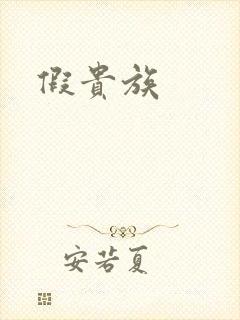 假貴族
安若夏